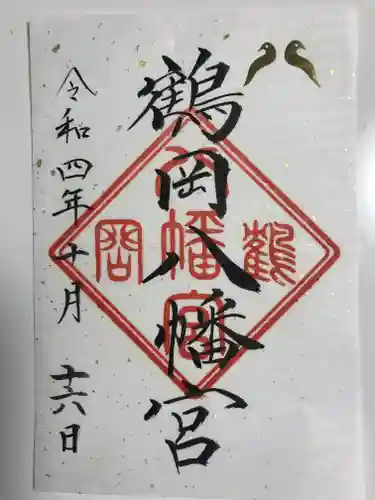 鶴岡八幡宮
令和四年十月十六日
鶴岡八幡宮